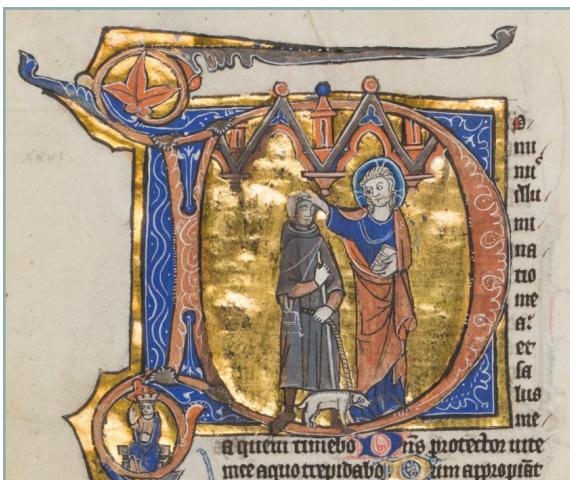 xxvi
D
o
mi
nus
illu
mi
na
tio
me
a:
et
sa
lus
me
a quem timebo Dns protector uite
mee a quo trepidabo: Dum appropiat